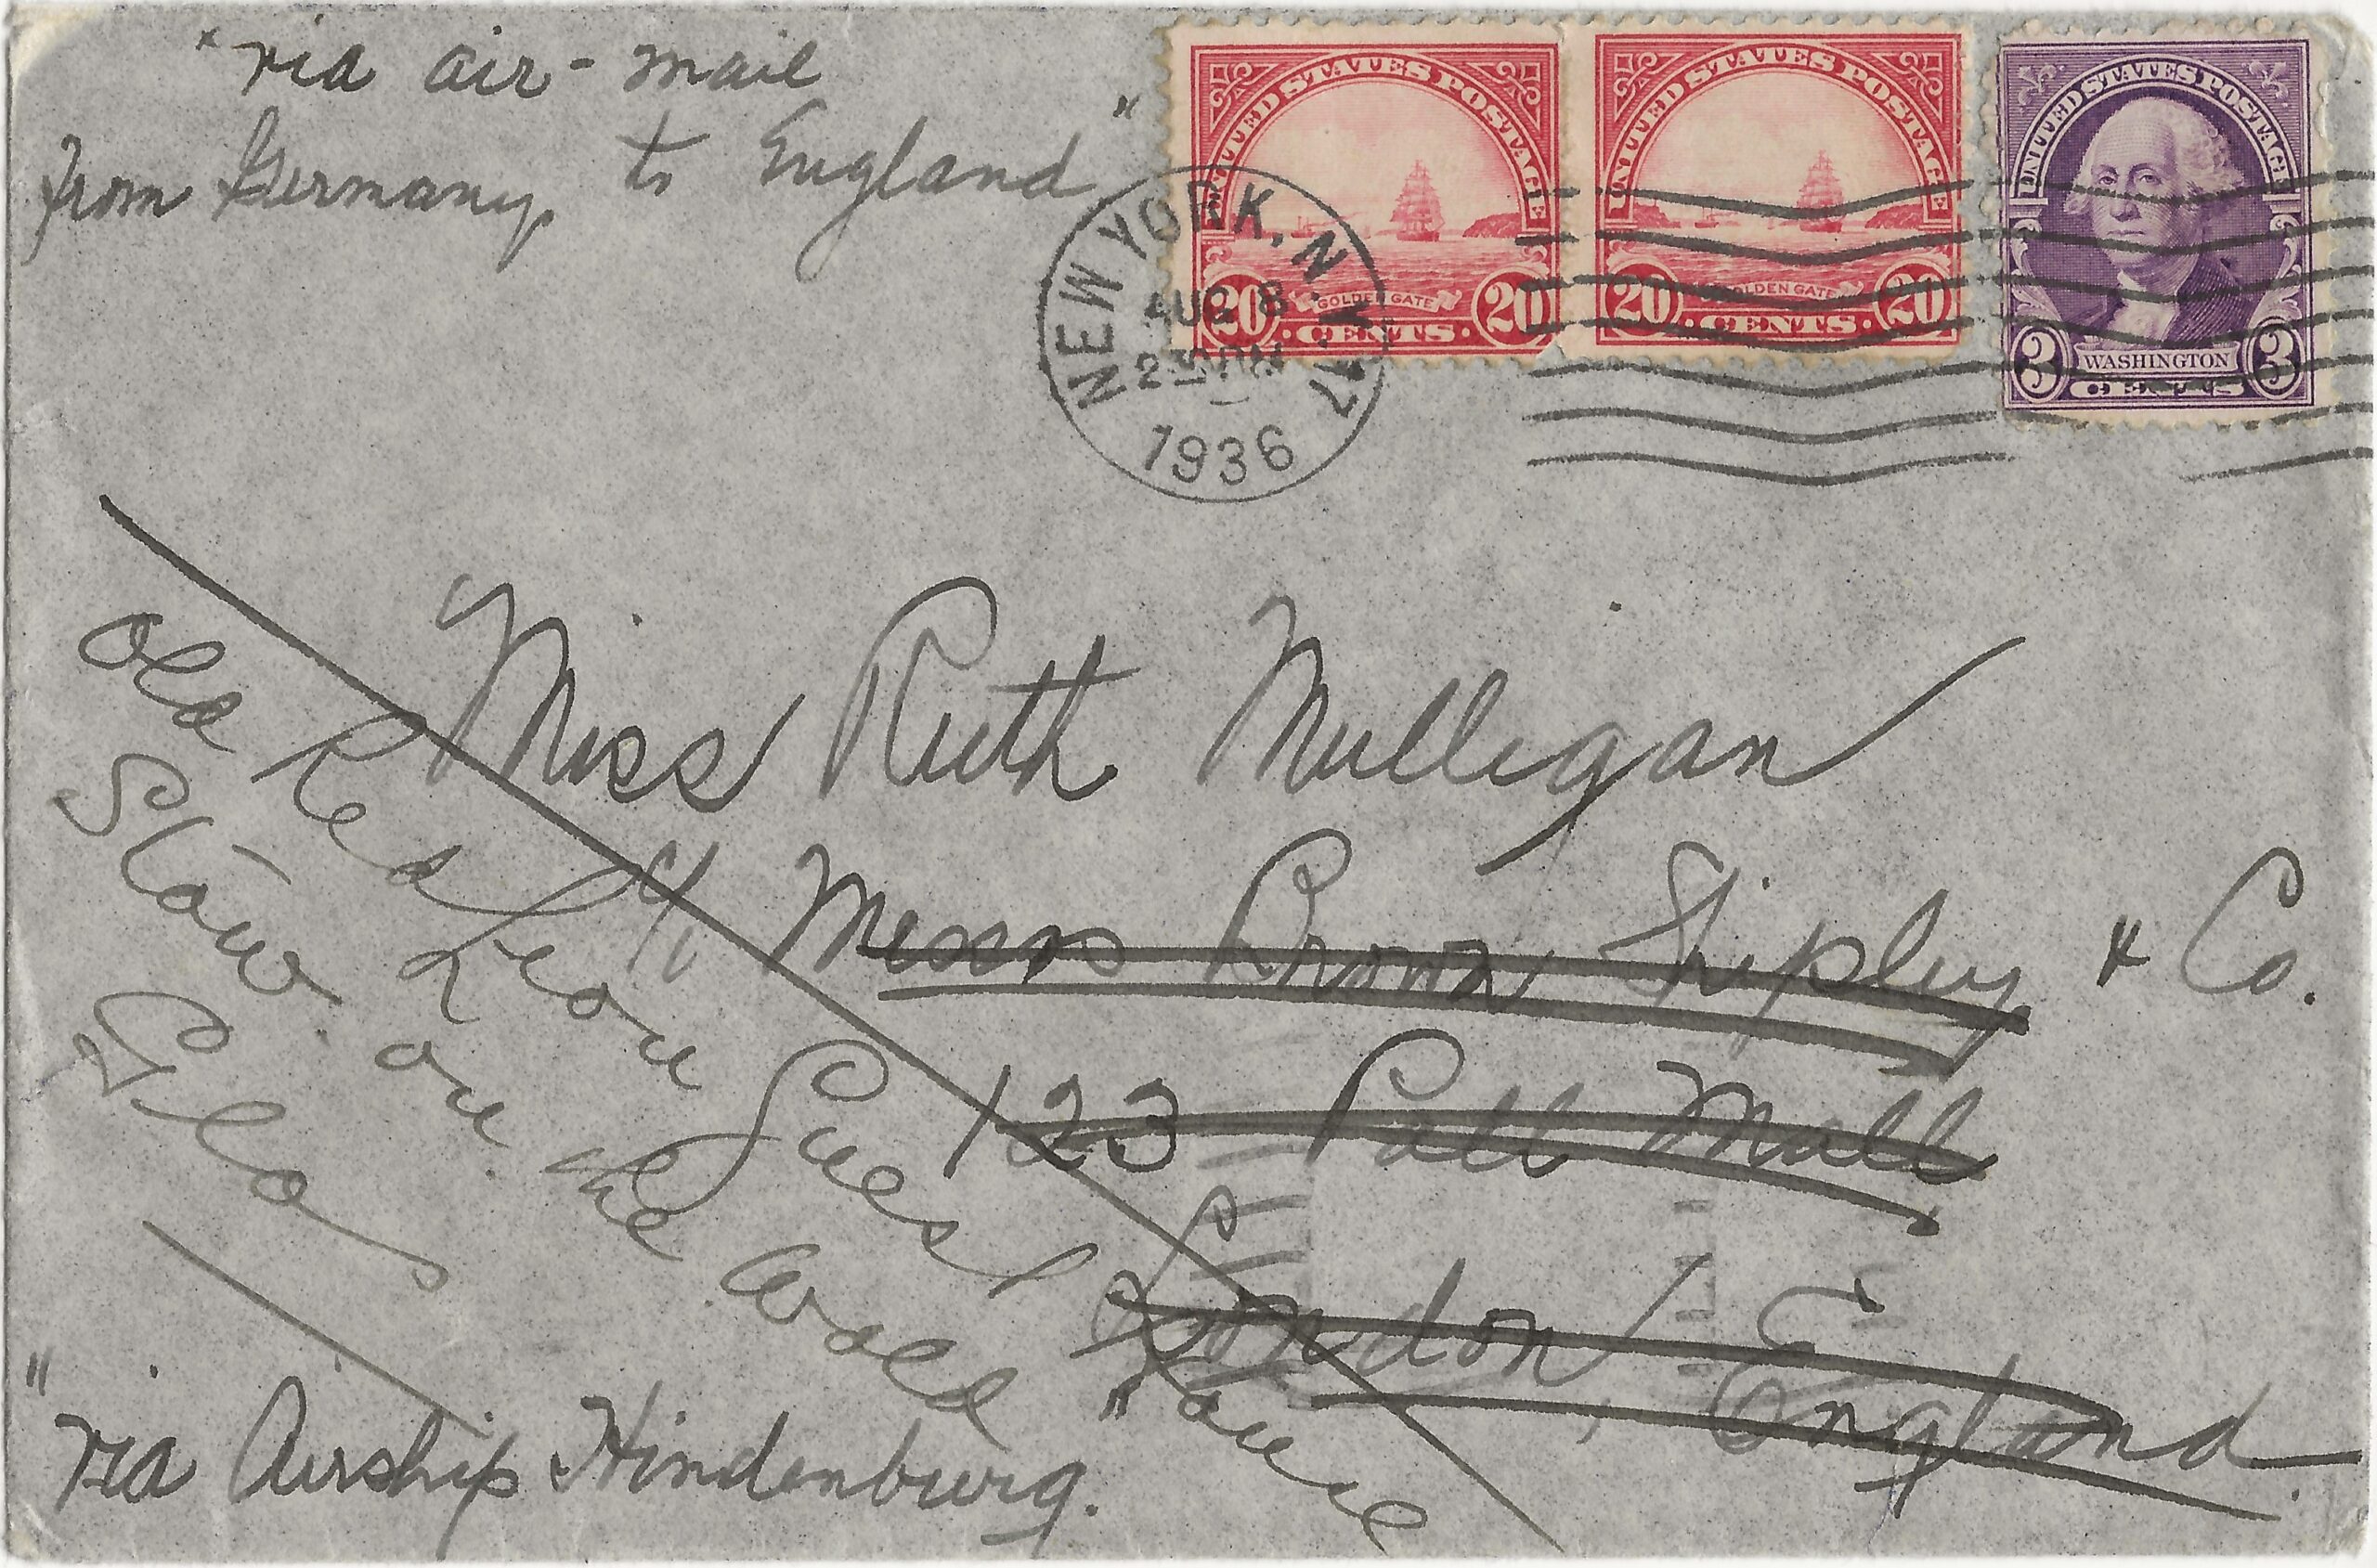 "via air-mail
from Germany to England"
UNITED STATES POSTAGE
20 GOLDEN GATE 20
CENTS
UNITED STATES POSTAGE
20 GOLDEN GATE 20
CENTS
UNITED STATES POSTAGE
3 WASHINGTON 3
CENTS
NEW YORK, N.Y. 17
AUG 8
230 PM
1936
Miss Ruth Mulligan
c/o Messrs Brown Shipley & Co.
123 Pall Mall
London, England.
Old Red Lion Guest House
Stow. on. the Wold
Glos
"via Airship Hindenburg."